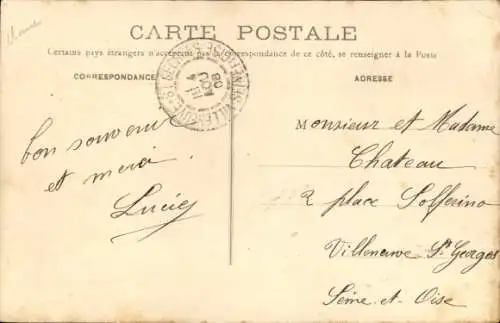 CARTE POSTALE
Certains pays étrangers n'acceptent pas la correspondance de ce côté, se renseigner à la Poste
CORRESPONDANCE
ADRESSE
bon souvenir
et merci
Lucie
Monsieur et Madame
Chateau
2 place Solférino
Villeneuve St Georges
Seine-et-Oise
VILLENEUVE-ST-GEORGES
08